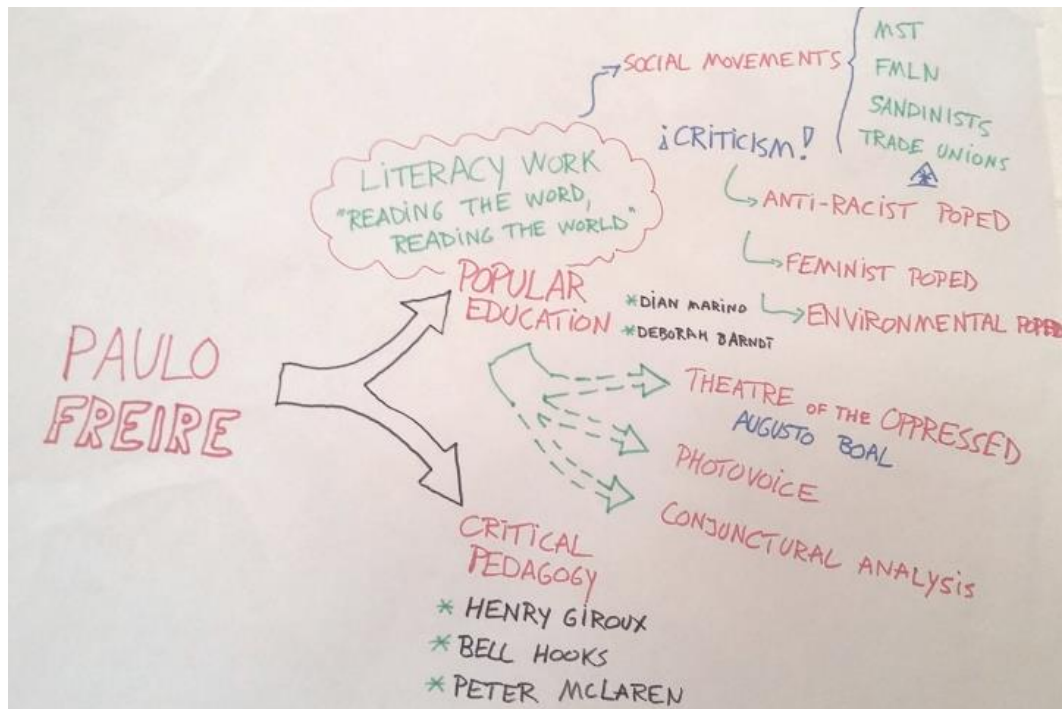 PAULO
FREIRE
LITERACY WORK
"READING THE WORD,
READING THE WORLD"
POPULAR
EDUCATION
*DIAN MARINO
*DEBORAH BARNDT
SOCIAL MOVEMENTS
MST
FMLN
SANDINISTS
TRADE UNIONS
¡CRITICISM!
ANTI-RACIST POPED
FEMINIST POPED
ENVIRONMENTAL POPED
THEATRE OF THE OPPRESSED
AUGUSTO BOAL
PHOTOVOICE
CONJUNCTURAL ANALYSIS
CRITICAL
PEDAGOGY
* HENRY GIROUX
* BELL HOOKS
* PETER MCLAREN